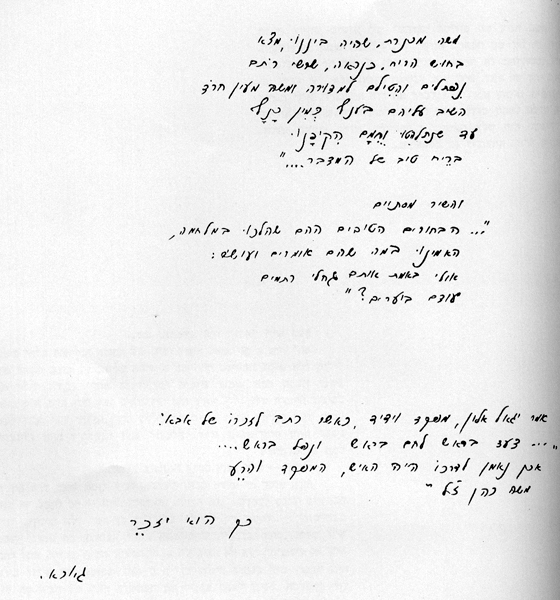 משה מכנרת, שהיה ביננו, מצא
בחוש הריח, כנראה, שרשי רותם
נפתלים והטילם למדורה ומשה מעין חרוד
השיב עליהם בענף כמין כנף
עד שנתלהטו וחמם הקיפנו
בריח טוב של המדבר...."
והשיר מסתיים
"... הבחורים הטובים ההם שהלכו במלחמה,
האמינו במה שהם אומרים ועושים:
אולי באמת אותם גחלי רתמים
עודם בוערים?"
אמר יגאל אלון, מפקד וידיד, כאשר כתב לזכרו של אבא:
"... צעד בראש לחם בראש ונפל בראש....
אכן נאמן לדרכו היה האיש, המפקד והרע
משה כהן ז"ל"
כך הוא יזכר
גיורא.